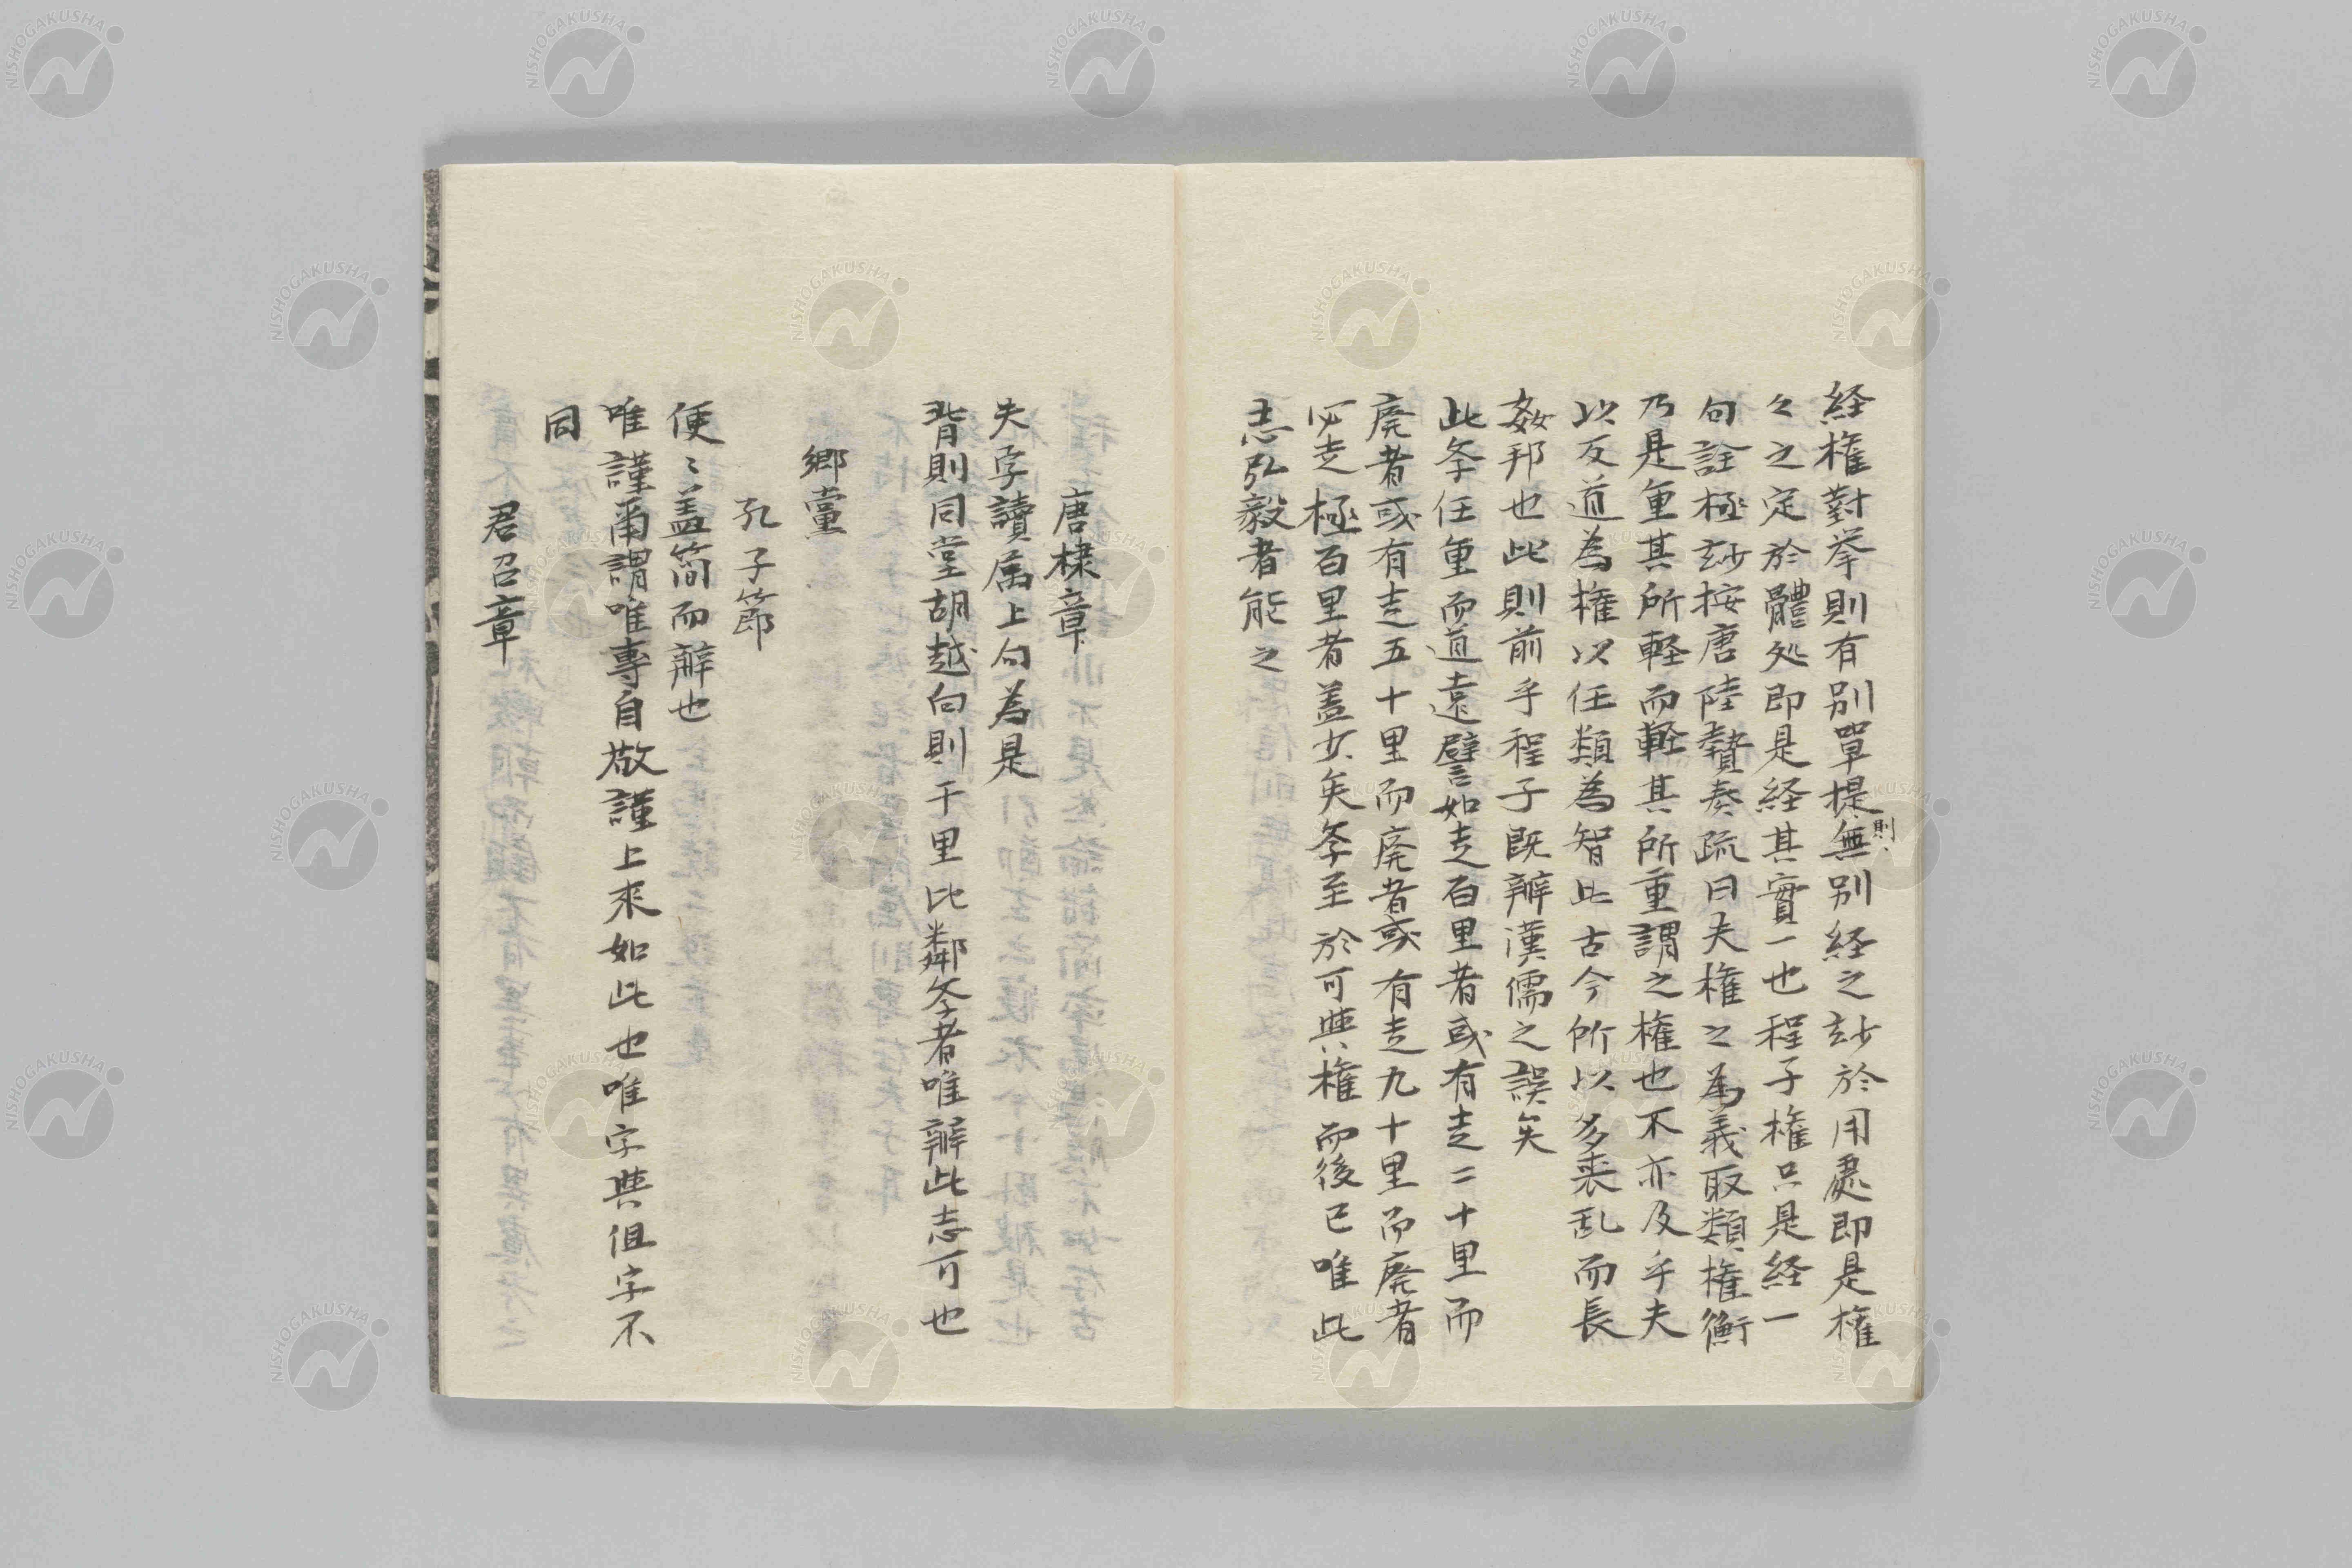 経権對挙則有別單提則無別経之玅於用處即是権
々之定於體処即是経其實一也程子権只是経一
句詮極玅按唐陸贄奏疏曰夫権之為義取類権衡
乃是重其所軽而軽其所重謂之権也不亦及乎夫
以反道為権以任類為智此古今所以多喪乱而長
姦邪也此則前乎程子既辨漢儒之誤矣
此条任重而道遠譬如走百里者或有走二十里而
廃者或有走五十里而廃者或有走九十里而廃者
必走極百里者蓋少矣条至於可與権而後已唯此
志弘毅者能之
唐棣章
夫字讀属上句為是
背則同堂胡越向則千里比鄰条者唯辨此志可也
鄉黨
孔子節
便〻蓋簡而辨也
唯謹爾謂唯專自敬謹上来如此也唯字與但字不
同
君召章
NISHOGAKUSHA